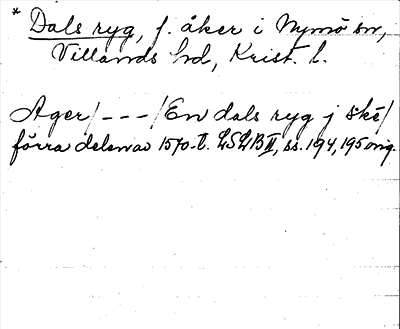 * Dals ryg, f. åker i Nymö sn,
Villands hd, Krist. l.
Ager/---/En dals ryg j Ske/
förra delen av 1570-t. LSLB II, ss. 194, 195 orig.